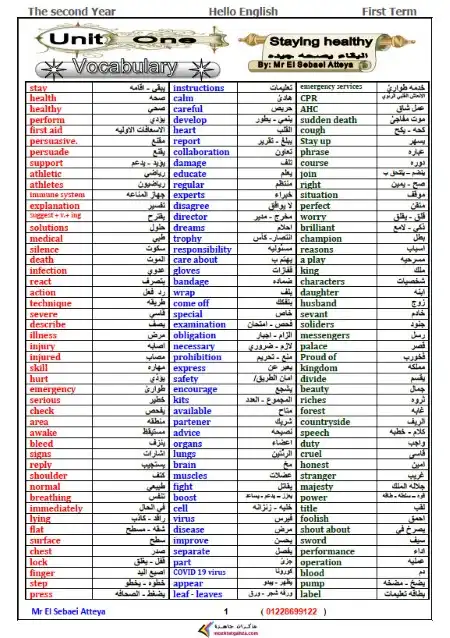 The second Year Hello English First Term
Unit One
Staying healthy
البقاء بصحه جيده
Vocabulary
By: Mr El Sebaei Atteya
stay يبقى - اقامه instructions تعليمات emergency services خدمه طوارئ
health صحه calm هادئ CPR
healthy صحي careful حريص AHC عمل شاق
perform يؤدي develop ينمي - يطور sudden death موت مفاجئ
first aid الاسعافات الاوليه heart القلب cough كحه - يكح
persuasive. مقنع report يبلغ - تقرير Stay up يسهر
persuade يقنع collaboration تعاون phrase عباره
support يؤيد - يدعم damage تلف course دوره
athletic رياضي educate يعلم join ينضم - يلتحق ب
athletes رياضيون regular منتظم right صح - يمين
immune system جهاز المناعه experts خبراء situation موقف
explanation تفسير disagree لا يوافق perfect متقن
suggest + v.+ ing يقترح director مخرج - مدير worry قلق - يقلق
solutions حلول dreams احلام brilliant ذكي - لامع
medical طبي trophy انتصار- كأس champion بطل
silence سكوت responsibility مسئوليه reasons اسباب
death الموت care about يهتم ب a play مسرحيه
infection عدوي gloves قفازات king ملك
react يتصرف bandage ضماده characters شخصيات
action رد فعل wrap يلف daughter ابنه
technique طريقه come off يتفكك husband زوج
severe قاسي special خاص sevant خادم
describe يصف examination فحص - امتحان soliders جنود
illness مرض obligation الزام - اجبار messengers رسل
injury اصابه necessary لازم - ضروري palace قصر
injured مصاب prohibition منع - تحريم Proud of فخورب
skill مهاره express يعبر عن kingdom مملكه
hurt يؤذي safety امان الطريق/ divide يقسم
emergency طوارئ encourage يشجع beauty جمال
serious خطير kits المجموع - العدد riches ثروه
check يفحص available متاح forest غابه
area منطقه partener شريك countryside الريف
awake مستيقظ advice نصيحه speech كلام - خطبه
bleed ينزف organs اعضاء duty واجب
signs اشارات lungs الرئتين cruel قاسي
reply يستجيب brain مخ honest امين
shoulder كتف muscles عضلات stranger غريب
normal طبيعي fight يقاتل majesty جلاله الملك
breathing تنفس boost يعزز - يدعم - يساعد power قوه - سلطه - طاقه
immediately في الحال cell خليه - زنزانه title لقب
lying راقد - كاذب virus فيرس foolish احمق
flat شقه - مسطح disease مرض shout about يصرخ في
surface سطح improve يحسن sword سيف
chest صدر separate يفصل performance اداء
lock قفل - يغلق part جزئ operation عمليه
finger اصبع اليد COVID 19 virus كورونا blood دم
step خطوه - يخطو appear يظهر - يبدو pump يضخ - مضخه
press يضغط - الصحافه leaf - leaves ورقه شجر - ورق label بطاقه تعليمات
Mr El Sebaei Atteya 1 ( 01228699122 )
مذكرات جاهزة